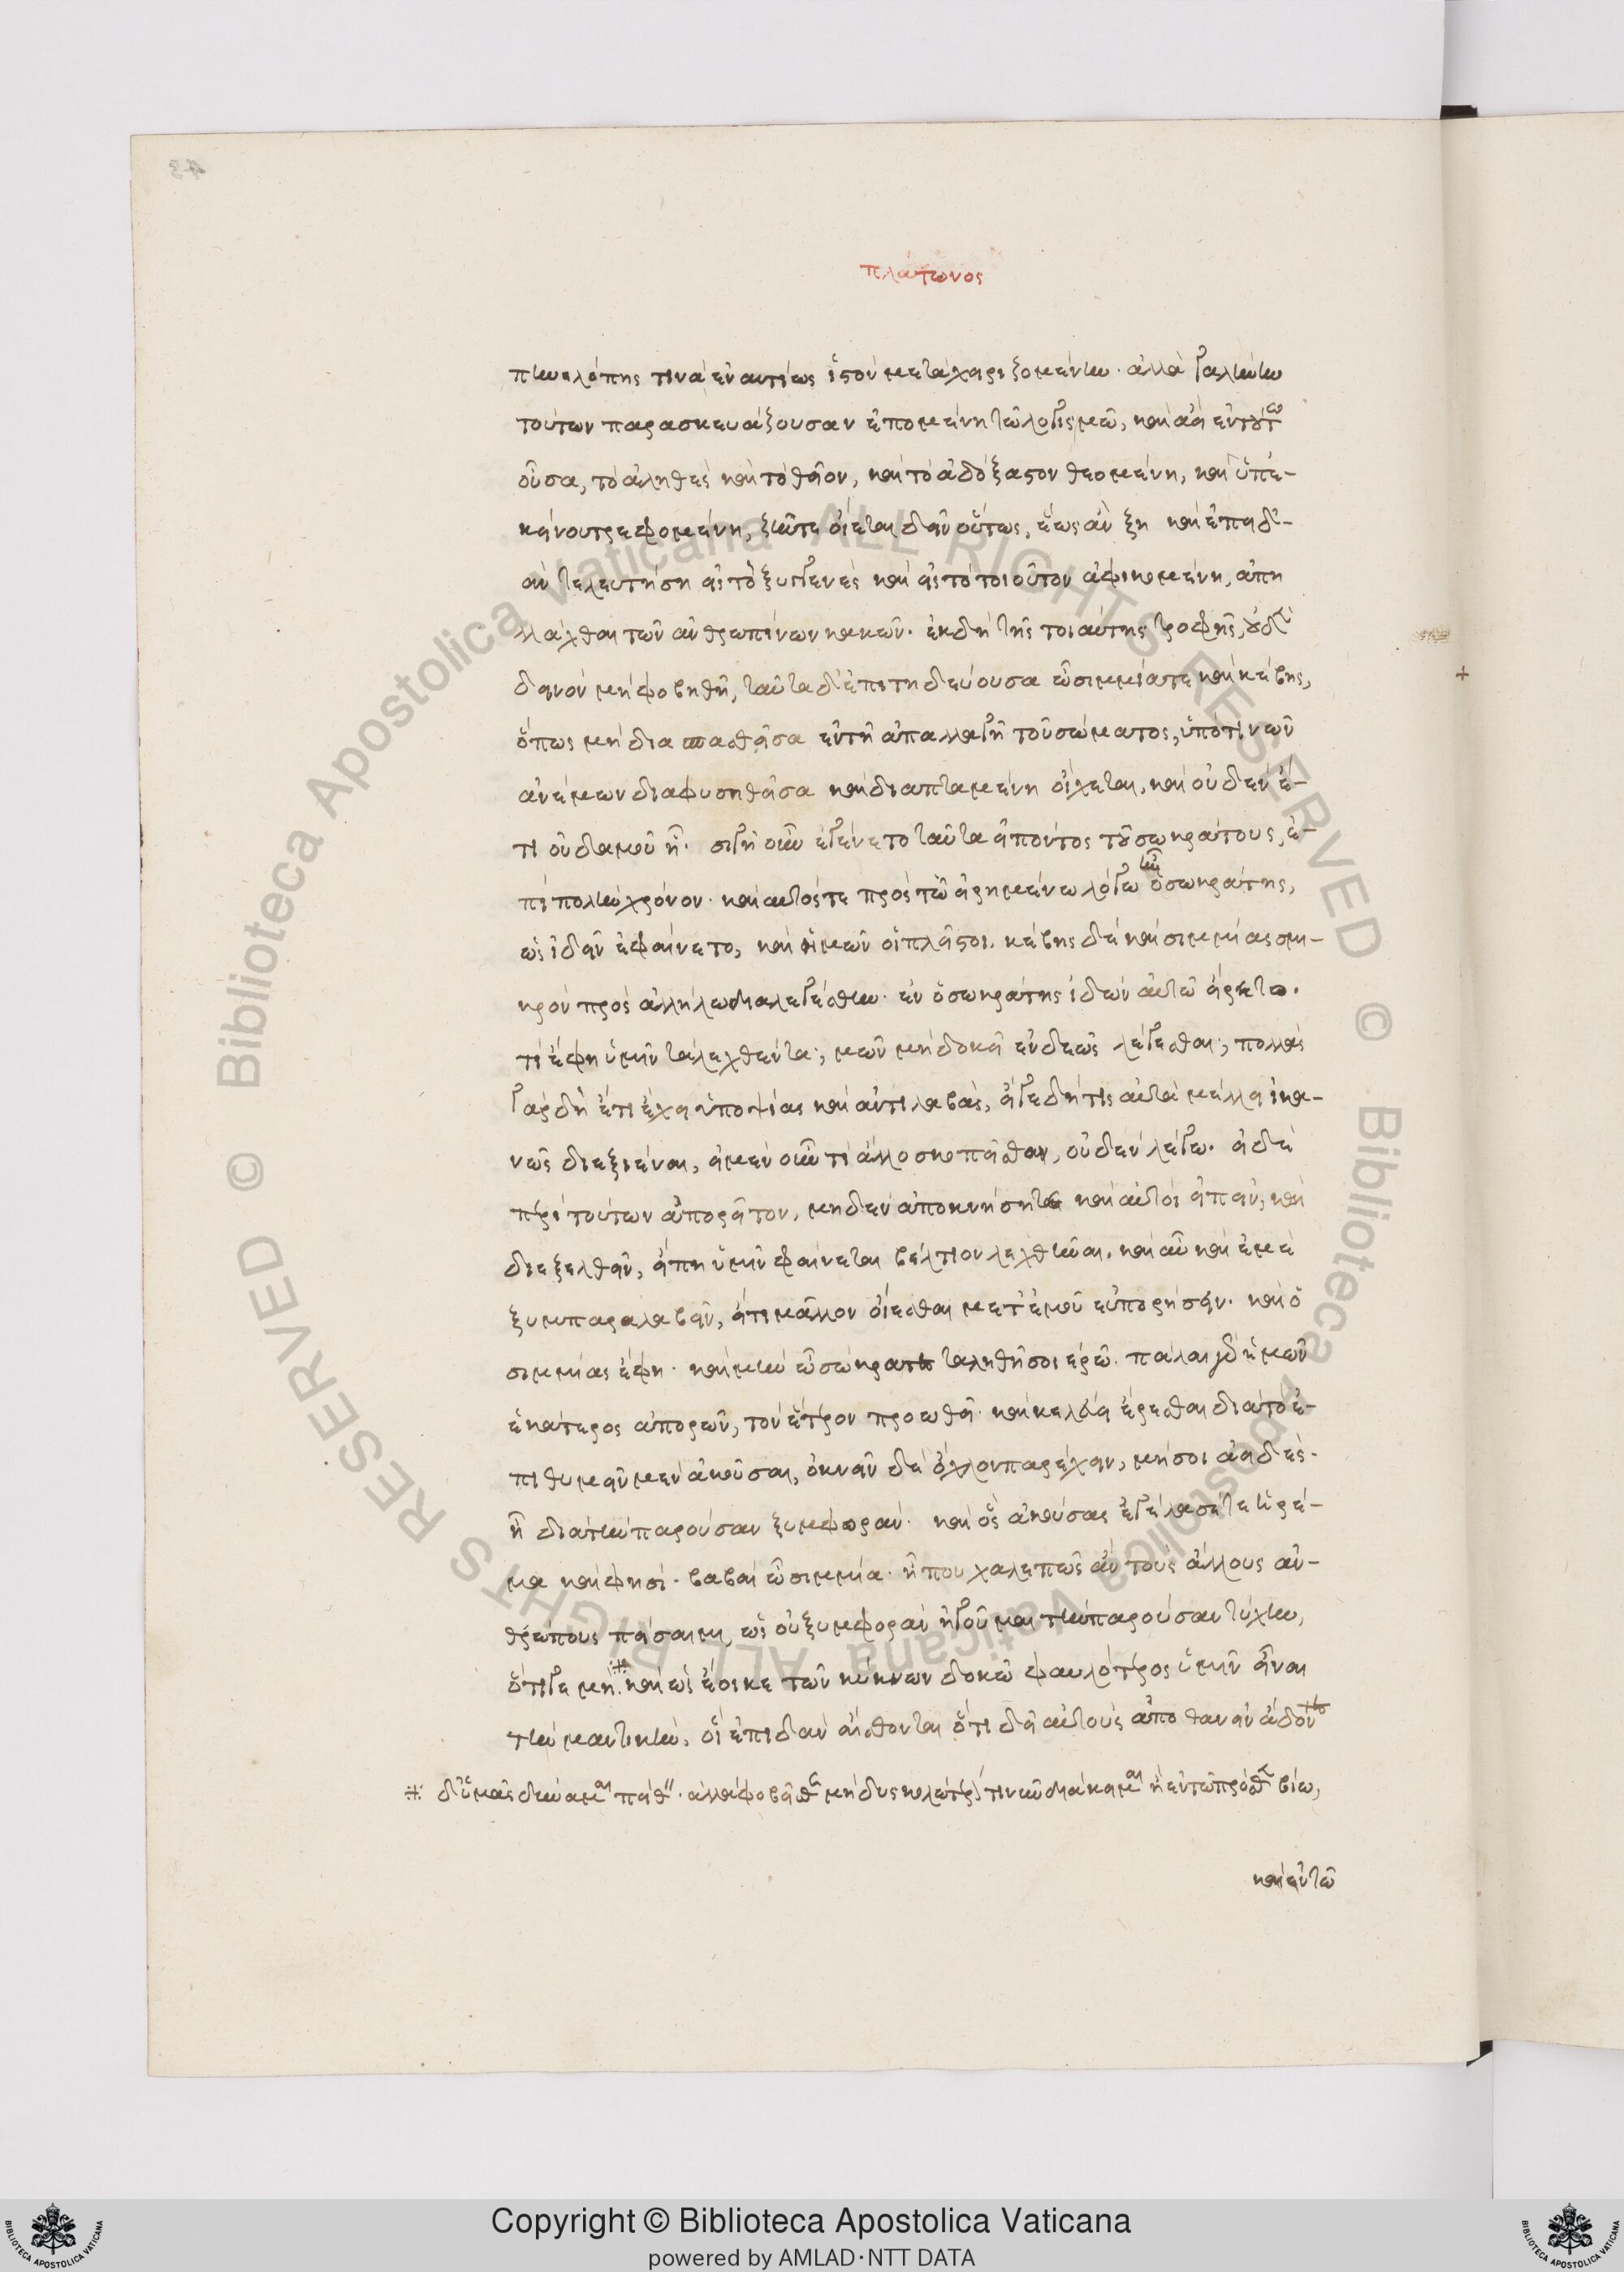 πλάτωνος
πηνελόπης τινὰ ἐναντίως ἱστὸν μεταχειριζομένην. ἀλλὰ γαλήνην
τούτων παρασκευάζουσαν ἑπομένη τῶ λογισμῶ, καὶ ἀεὶ ἐν τούτω
οὖσα, τὸ ἀληθὲς καὶ τὸ θεῖον, καὶ τὸ ἀδόξαστον θεομένη, καὶ ὑπ' ἐ-
κείνου τρεφομένη, ζῆν τε οἴεται δεῖν οὕτως, ἕως ἂν ζῆ καὶ ἐπειδ-
ὰν τελευτήση εἰς τὸ ξυγγενὲς καὶ εἰς τὸ τοιοῦτον ἀφικομένη, ἀπη
λλάχθαι τῶν ἀνθρωπίνων κακῶν. ἐκ δὴ τῆς τοιαύτης τροφῆς, οὐδὲν
δεινὸν μὴ φοβηθῆ, ταῦτα δ' ἐπιτηδεύουσα ὦ σιμμία τε καὶ κέβης,
ὅπως μὴ διασπασθεῖσα ἐν τῆ ἀπαλλαγῆ τοῦ σώματος, ὑπό τινων
ἀνέμων διαφυσηθεῖσα καὶ διαπταμένη οἴχεται, καὶ οὐδὲν ἔ-
τι οὐδαμοῦ ἦ. σιγὴ οὖν ἐγένετο ταῦτα εἰπόντος τοῦ σωκράτους, ἐ-
πὶ πολὺν χρόνον. καὶ αὐτός τε πρὸς τῶ εἰρημένω λόγω ἦν ὁ σωκράτης,
ὡς ἰδεῖν ἐφαίνετο, καὶ ἡμῶν οἱ πλεῖστοι. κέβης δὲ καὶ σιμμίας σμι-
κρὸν πρὸς ἀλλήλω διαλεγέσθην. ἓν ὁ σωκράτης ἰδὼν αὐτὼ εἴρετο.
τί ἔφη ὑμῖν τὰ λεχθέντα; μῶν μὴ δοκεῖ ἐνδεῶς λέγεσθαι; πολλὰς
γὰρ δὴ ἔτι ἔχει ὑποψίας καὶ ἀντιλαβὰς, εἴ γε δή τις αὐτὰ μέλλει ἱκα-
νῶς διεξιέναι, εἰ μὲν οὖν τι ἄλλο σκοπεῖσθον, οὐδὲν λέγω. εἰ δὲ
περὶ τούτων ἀπορεῖτον, μηδὲν ἀποκνήσητε καὶ αὐτοὶ εἰπεῖν, καὶ
διεξελθεῖν, εἴ πη ὑμῖν φαίνεται βέλτιον λεχθῆναι. καὶ αὖ καὶ ἐμὲ
ξυμπαραλαβεῖν, εἴ τι μᾶλλον οἴεσθαι μετ' ἐμοῦ εὐπορήσειν. καὶ ὁ
σιμμίας ἔφη. καὶ μὴν ὦ σώκρατες τἀληθῆ σοι ἐρῶ. πάλαι γὰρ ἡμῶν
ἑκάτερος ἀπορῶν, τὸν ἕτερον προωθεῖ. καὶ κελεύει ἔρεσθαι διὰ τὸ ἐ-
πιθυμεῖν μὲν ἀκοῦσαι, ὀκνεῖν δὲ ὄχλον παρέχειν, μή σοι ἀηδὲς.
ἦ διὰ τὴν παροῦσαν ξυμφορὰν. καὶ ὃς ἀκούσας ἐγέλασέ τε ἠρέ-
μα καὶ φησὶ. βαβαὶ ὦ σιμμία. ἦ που χαλεπῶς ἂν τοὺς ἄλλους ἀν-
θρώπους πείσαιμι, ὡς οὐ ξυμφορὰν ἡγοῦμαι τὴν παροῦσαν τύχην,
ὅτι γε μὴ. καὶ ὡς ἔοικε τῶν κύκνων δοκῶ φαυλότερος ὑμῖν εἶναι
τὴν μαντικὴν, οἳ ἐπειδὰν αἴσθονται ὅτι δεῖ αὐτοὺς ἀποθανεῖν ἄδοντες
δ' ὑμᾶς δύναμαι πείθειν. ἀλλὰ φοβεῖσθε μὴ δυσκολώτερόν τι νῦν διάκειμαι ἢ ἐν τῶ πρόσθεν βίω,
καὶ ἐν τῶ